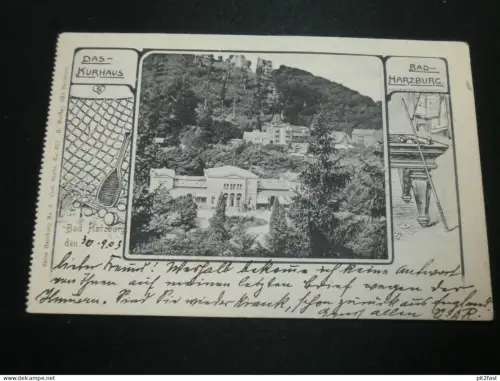 DAS-
KURHAUS
BAD-
HARZBURG.
Bad Harzburg
den 30.9.03
Lieber Freund! Weshalb bekomme ich keine Antwort
von Ihnen auf meinen letzten Brief wegen der
Sind Sie wieder krank, schon zurück aus England
allen